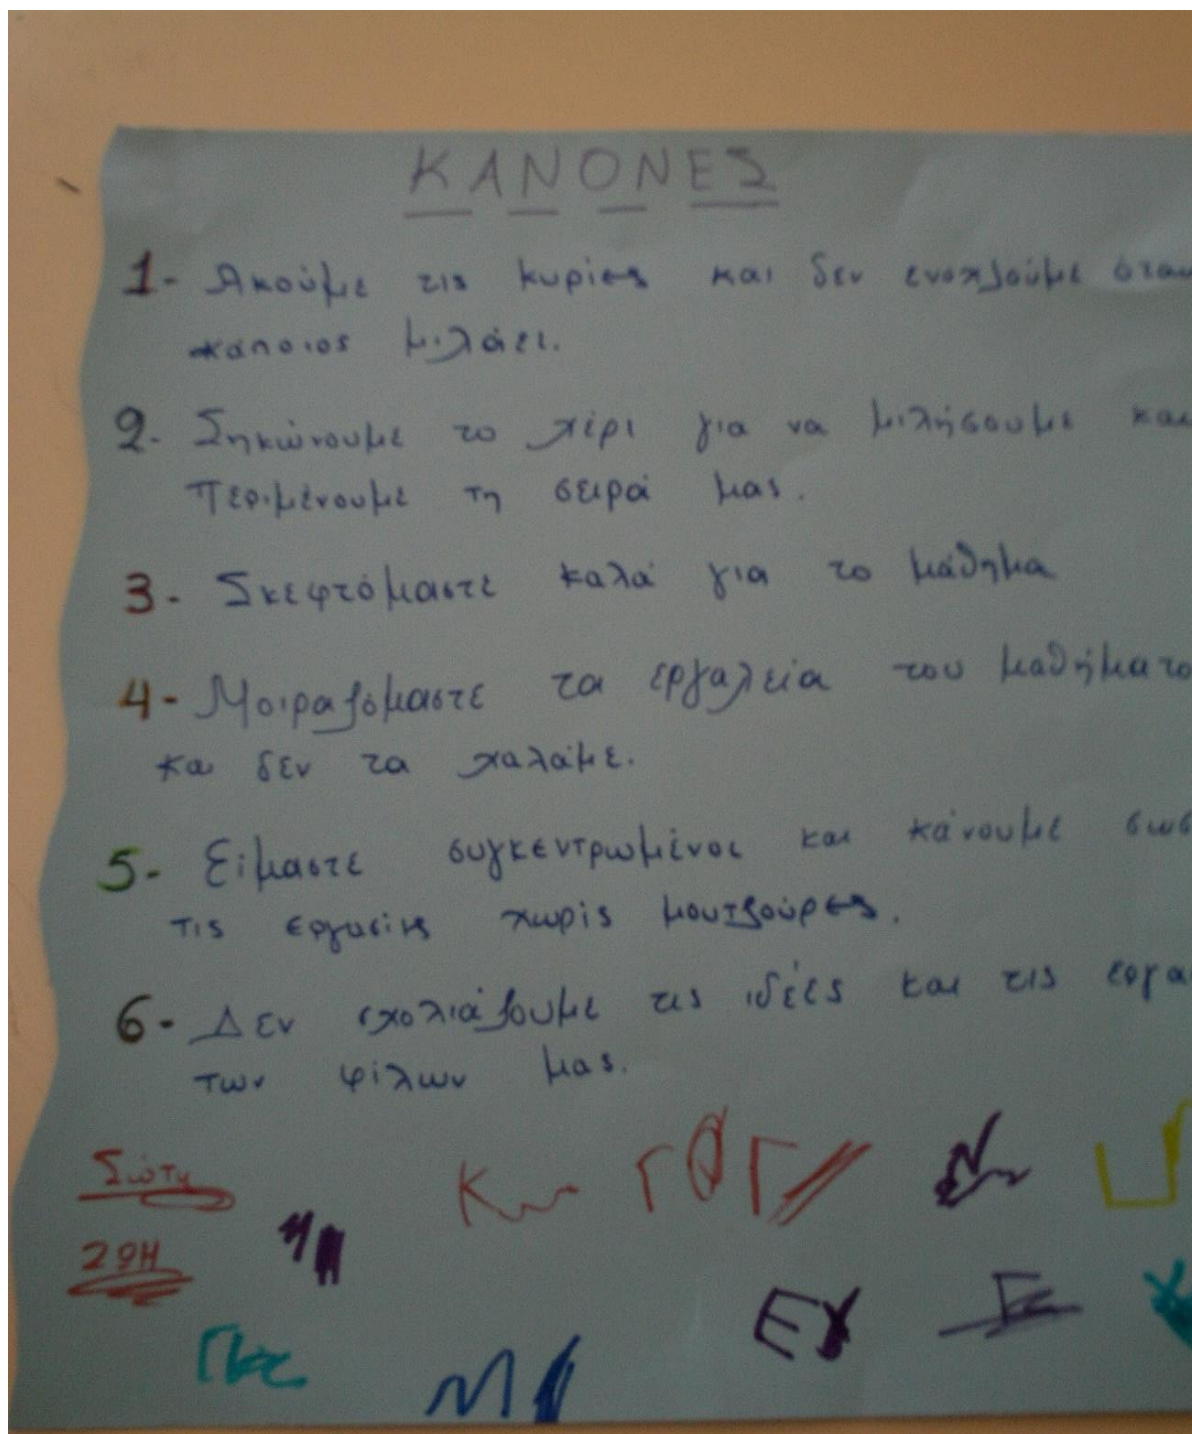 ΚΑΝΟΝΕΣ
1- Ακούμε τις κυρίες και δεν ενοχλούμε όταν
κάποιος μιλάει.
2- Σηκώνουμε το χέρι για να μιλήσουμε και
περιμένουμε τη σειρά μας.
3- Σκεφτόμαστε καλά για το μάθημα
4- Μοιραζόμαστε τα εργαλεία του μαθήματο
και δεν τα χαλάμε.
5- Είμαστε συγκεντρωμένοι και κάνουμε σωσ
τις εργασίες χωρίς μουτζούρες.
6- Δεν σχολιάζουμε τις ιδέες και τις εργα
των φίλων μας.
Σώτη
ΖΩΗ